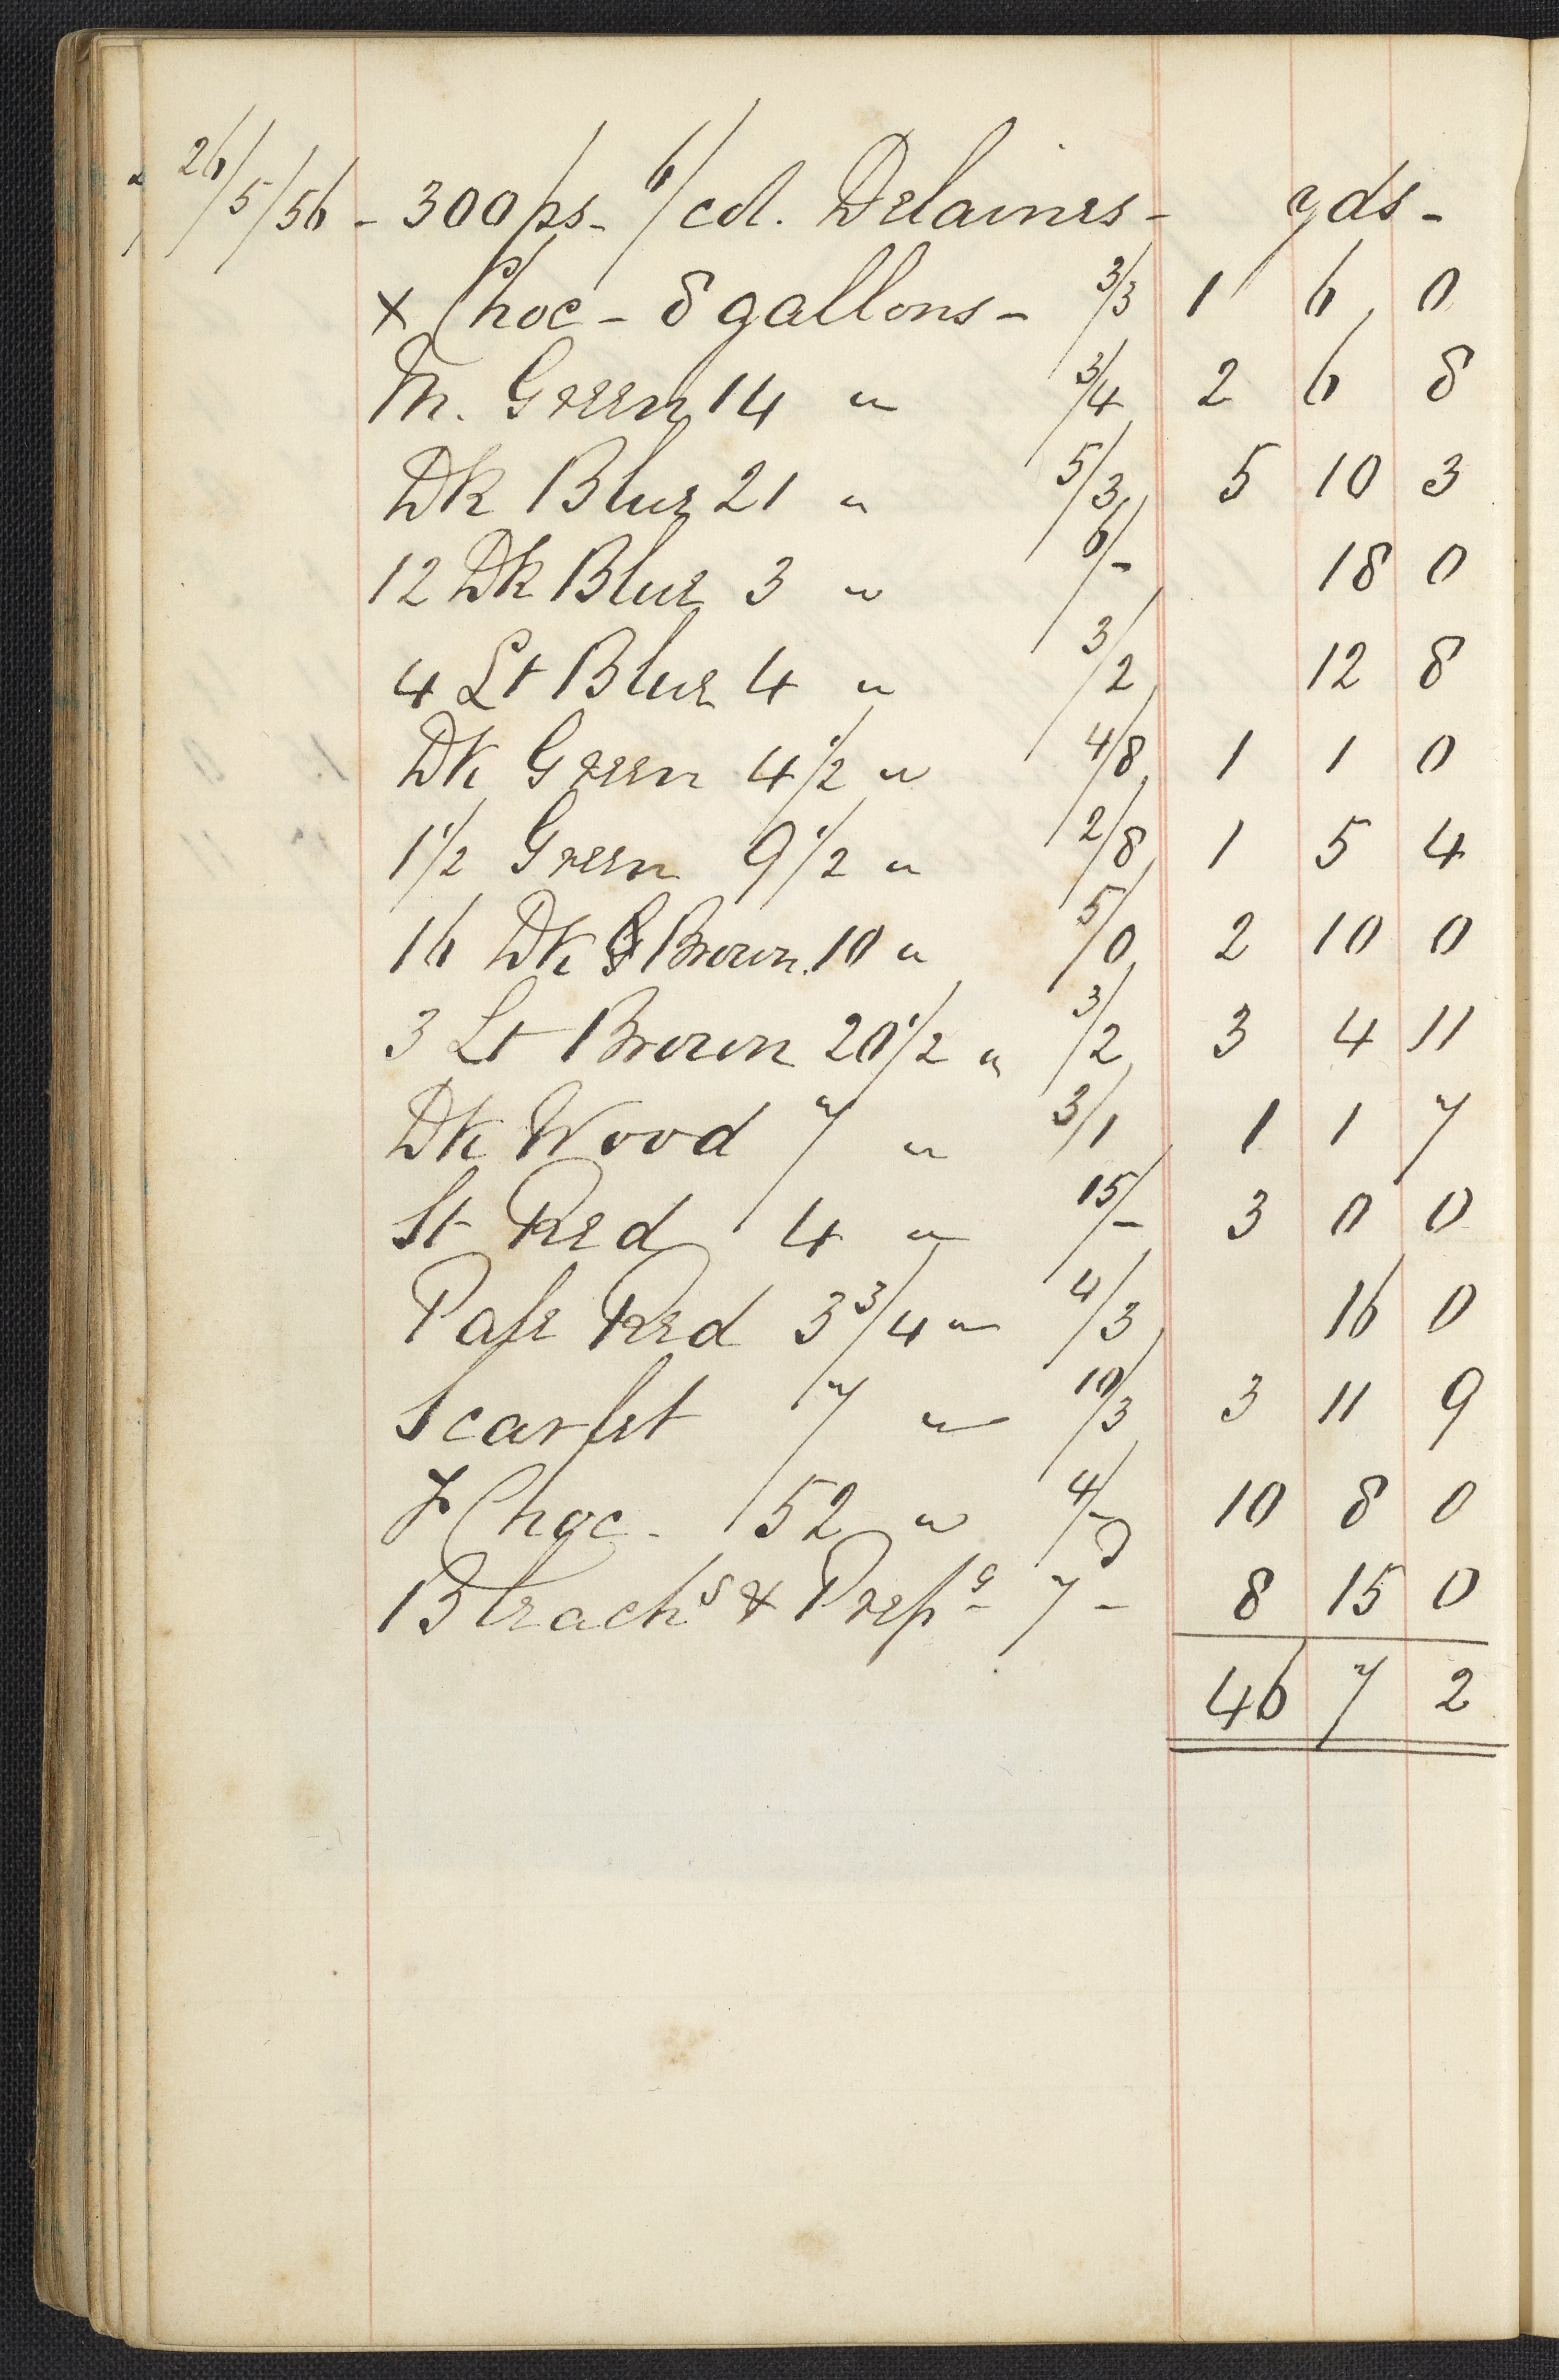 26/5/56 - 300 ps - 6/ col. Delaines - yds -
x Choc - 8 gallons - 3/3 1 6 0
M. Green 14 " 3/4 2 6 8
Dk Blue 21 " 5/3 5 10 3
12 Dk Blue 3 " 6/- 18 0
4 Lt Blue 4 " 3/2 12 8
Dk Green 4 1/2 " 4/8 1 1 0
1 1/2 Green 9 1/2 " 2/8 1 5 4
16 Dk Brown 10 " 5/0 2 10 0
3 Lt Brown 20 1/2 " 3/2 3 4 11
Dk Wood 7 " 3/1 1 1 7
St Red 4 " 15/- 3 0 0
Pale Red 3 3/4 " 4/3 16 0
Scarlet 7 " 10/3 3 11 9
Choc - 52 " 4/- 10 8 0
Bleachs & Prepg 7d - 8 15 0
46 7 2